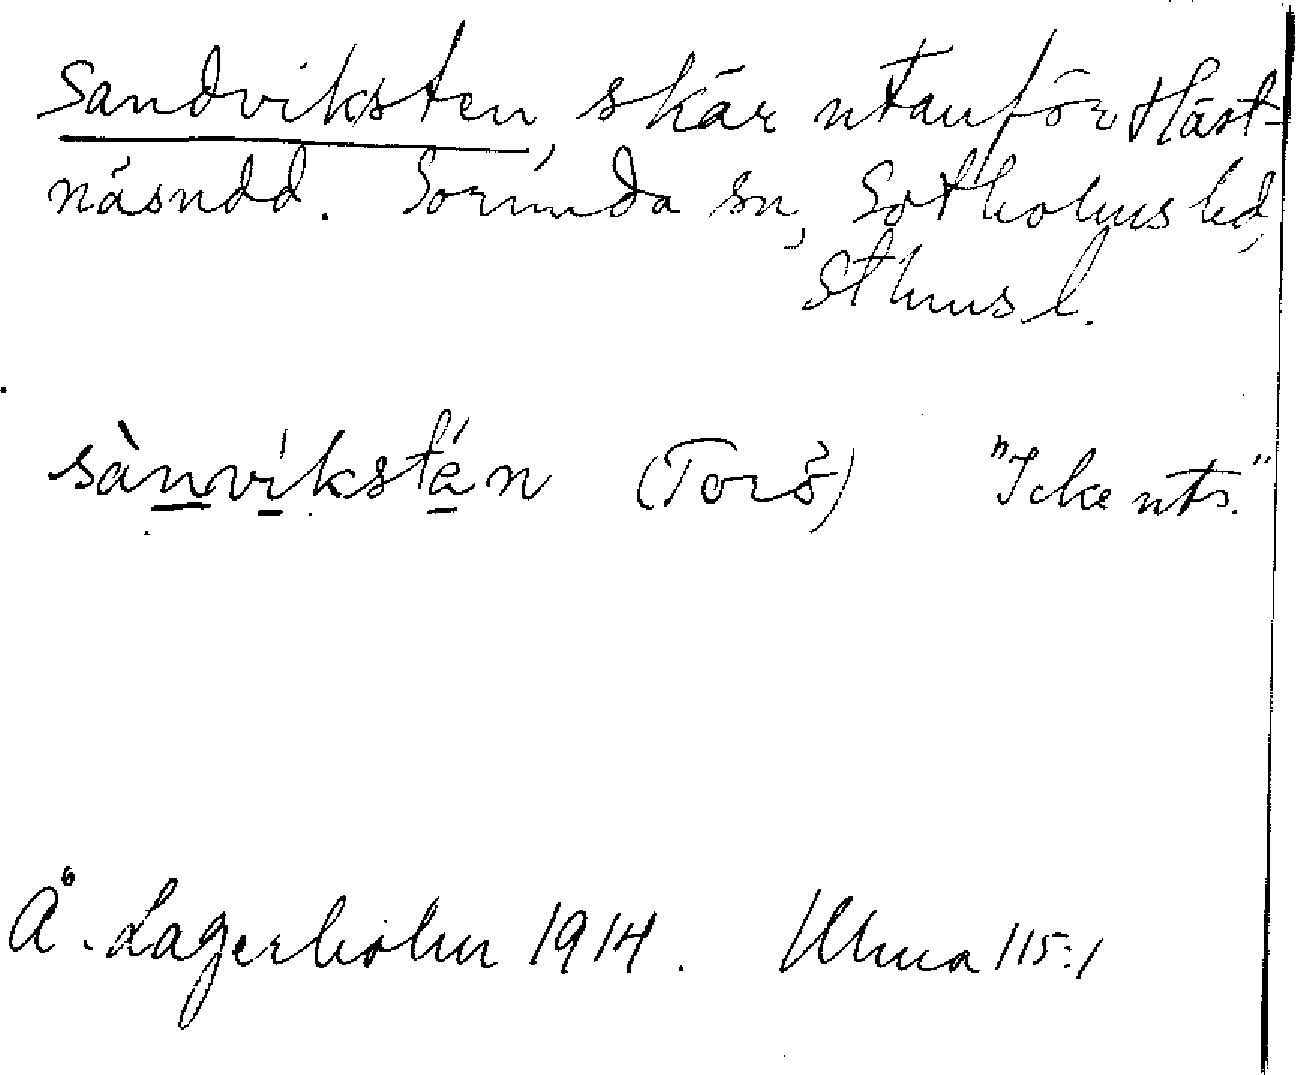 Sandviksten, skär utanför Häst-
näsudd. Sorunda sn, Sotholms hd,
Sthms l.
sànvíkstén (Torö) "Icke uts."
Å. Lagerholm 1914. Ulma 115:1